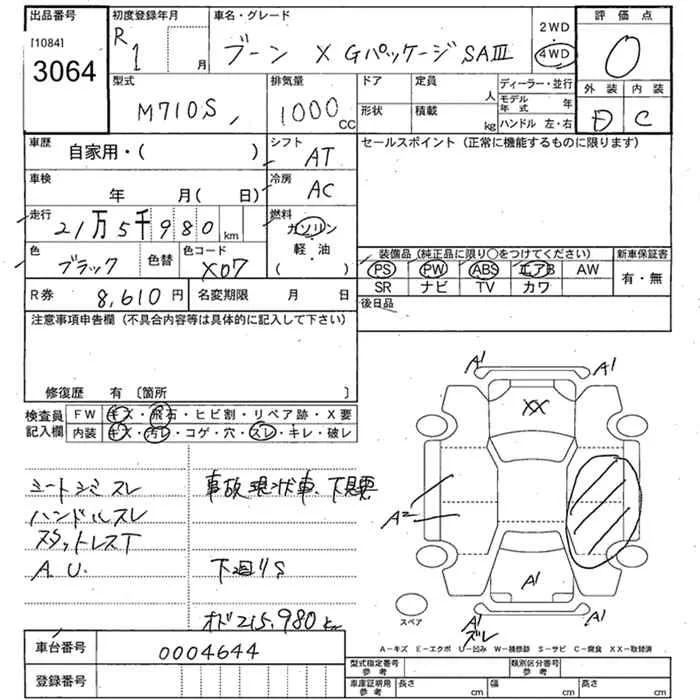 出品番号
[1084]
3064
初度登録年月
R 1 月
車名・グレード
ブーン X Gパッケージ SAⅢ
2WD
4WD
評価点
0
外装 内装
D C
型式
M710S
排気量
1000 CC
ドア
形状
定員 人
積載 kg
ディーラー・並行
モデル年式 年
ハンドル 左・右
車歴
自家用・( )
シフト
AT
セールスポイント(正常に機能するものに限ります)
車検
年 月( 日)
冷房
AC
走行
21万5千980 km
燃料
ガソリン
軽・油
( )
色
ブラック
色替
色コード
X07
装備品(純正品に限り〇をつけてください)
新車保証書
PS PW ABS エアB AW
SR ナビ TV カワ
有・無
R券
8,610円
名変期限 月 日
後日品
注意事項申告欄(不具合内容等は具体的に記入して下さい)
修復歴 有〔箇所 〕
検査員記入欄
FW キズ・飛石・ヒビ割・リペア跡・X要
内装 キズ・汚レ・コゲ・穴・スレ・キレ・破レ
シートシミ スレ
ハンドルスレ
スタットレスT
A.U.
事故現状車、下見要
下廻りS
オド215,980
A1 A1
XX
A2
A1
A1 A1
ズレ
スペア
A-キズ E-エクボ U-凹み W-補修跡 S-サビ C-腐食 XX-取替済
車台番号
0004644
登録番号
型式指定番号
参考
類別区分番号
参考
車庫証明用
参考
長さ cm 幅 cm 高さ cm